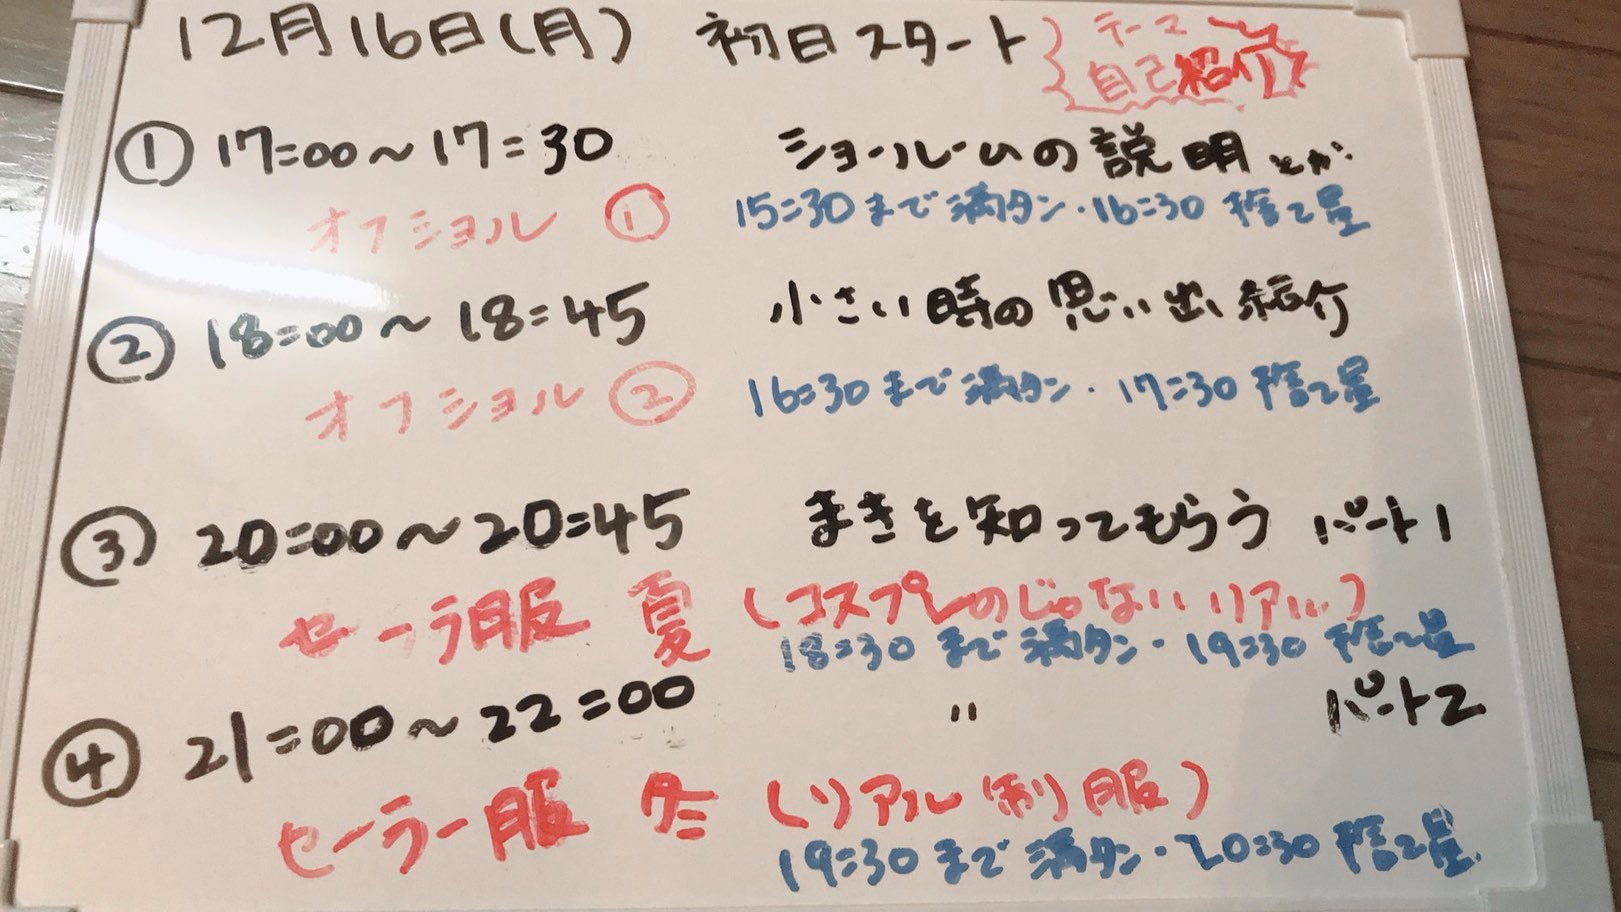 12月16日(月) 初日スタート テーマ
自己紹介
① 17:00〜17:30 ショールームの説明とか
オフショル ① 15:30まで満タン・16:30 捨て星
② 18:00〜18:45 小さい時の思い出紹介
オフショル ② 16:30まで満タン・17:30 捨て星
③ 20:00〜20:45 まきを知ってもらう パート1
セーラ服 夏 (コスプレのじゃないリアル)
18:30まで満タン・19:30 捨て星
④ 21:00〜22:00 〃 パート2
セーラー服 冬 (リアル制服)
19:30まで満タン・20:30 捨て星